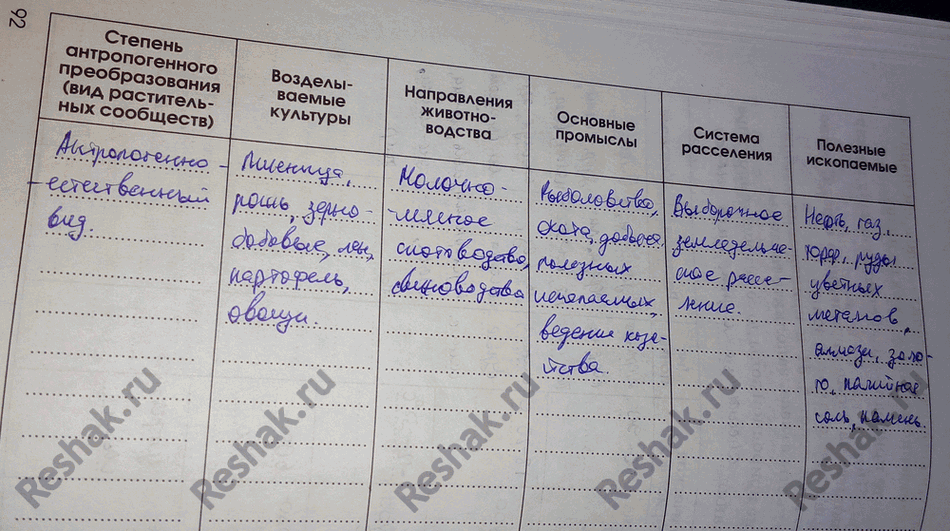 92
Степень
антропогенного
преобразования
(вид раститель-
ных сообществ)
Возделы-
ваемые
культуры
Направления
животно-
водства
Основные
промыслы
Система
расселения
Полезные
ископаемые
Антропогенно-
-естественный
вид.
Пшеница,
рошь, зерно-
бобовые, лен,
картофель,
овощи.
Молочно-
-мясное
скотоводство,
свиноводство
Рыболовство,
охота, добыча
полезных
ископаемых,
ведение хозя-
йства.
Выборочное
земледельче-
ское рассе-
ление.
Нефть, газ,
торф, руды
цветных
металлов,
алмазы, золо-
то, калийная
соль, камень.
Reshak.ru
Reshak.ru
Reshak.ru
Reshak.ru
Reshak.ru